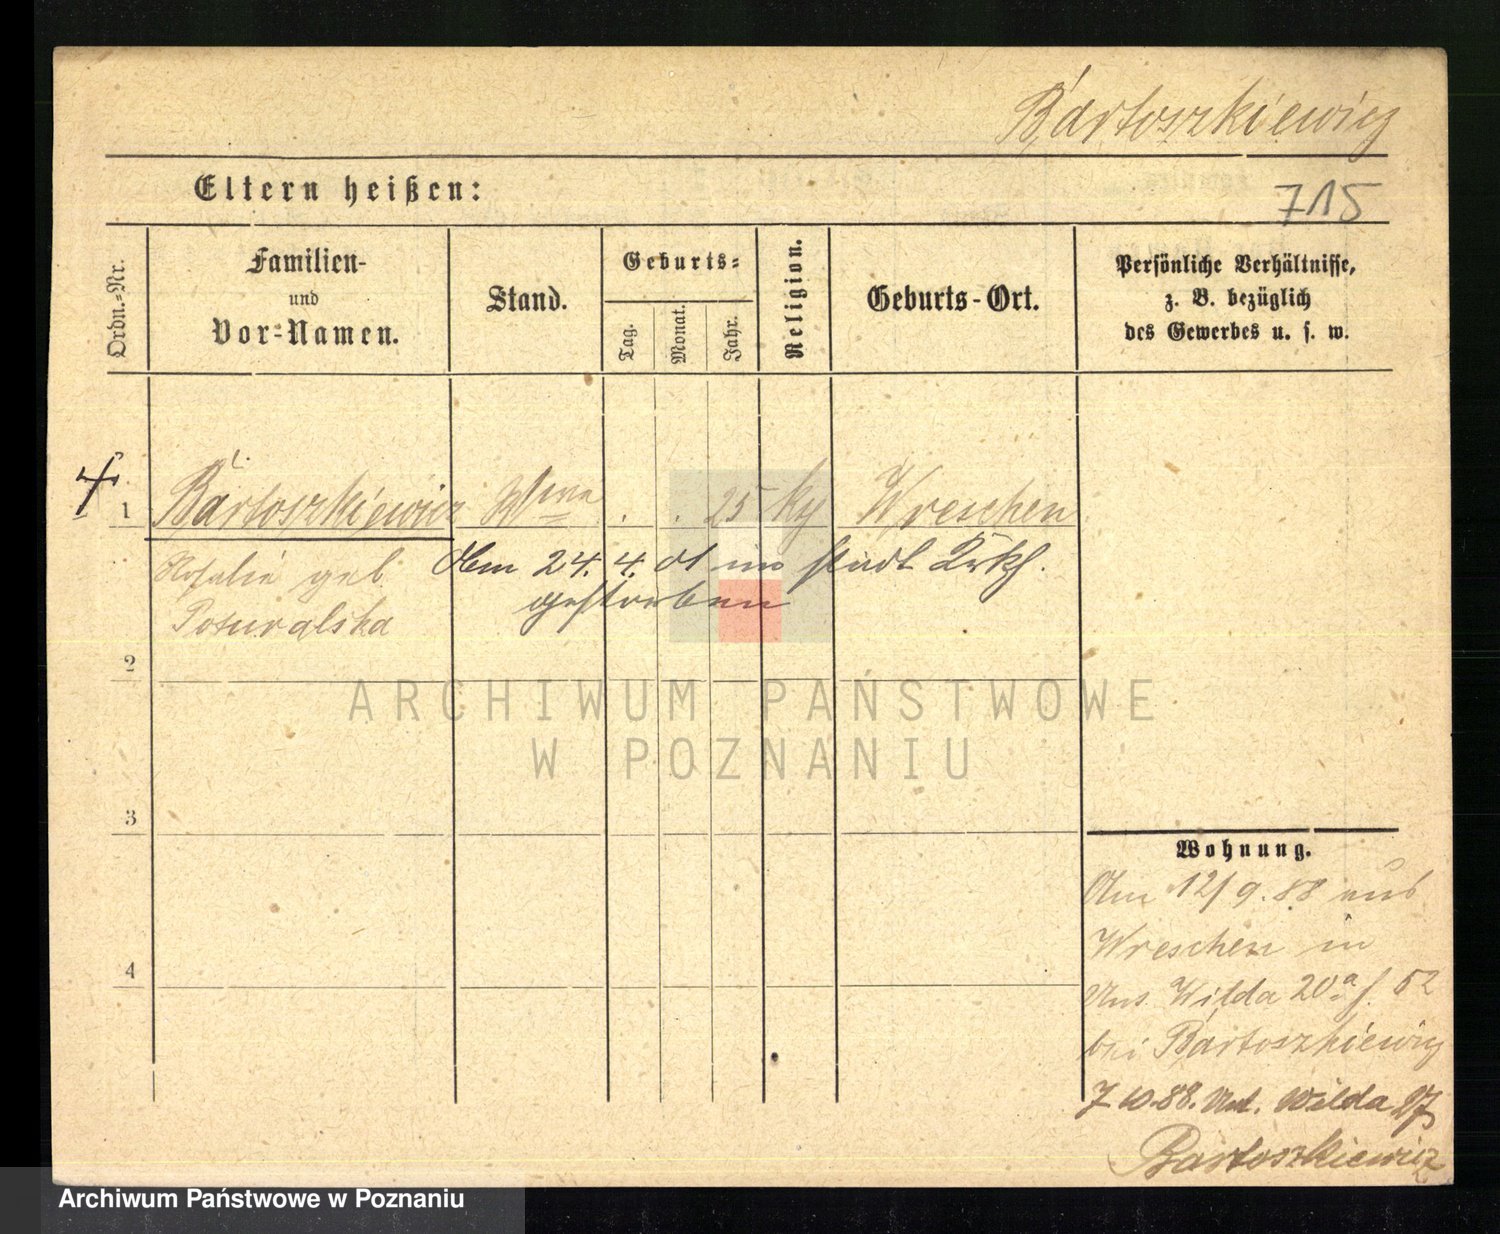 Bartoszkiewicz
Eltern heißen:
715
Ordn.-Nr.
Familien-
und
Vor-Namen.
Stand.
Geburts-
Tag.
Monat.
Jahr.
Religion.
Geburts-Ort.
Persönliche Verhältnisse,
z. B. bezüglich
des Gewerbes u. s. w.
1 Bartoszkiewicz Wwe . . 25 ky Wreschen
Rosalie geb
Poturalska
Am 24. 4. 91 im Stadt Krkh.
gestorben
2
3
4
ARCHIWUM PAŃSTWOWE
W POZNANIU
Wohnung.
Am 12/9. 88 aus
Wreschen in
Unt. Wilda 20a f. 52
bei Bartoszkiewicz
7 10.88. Unt. Wilda 27
Bartoszkiewicz
Archiwum Państwowe w Poznaniu